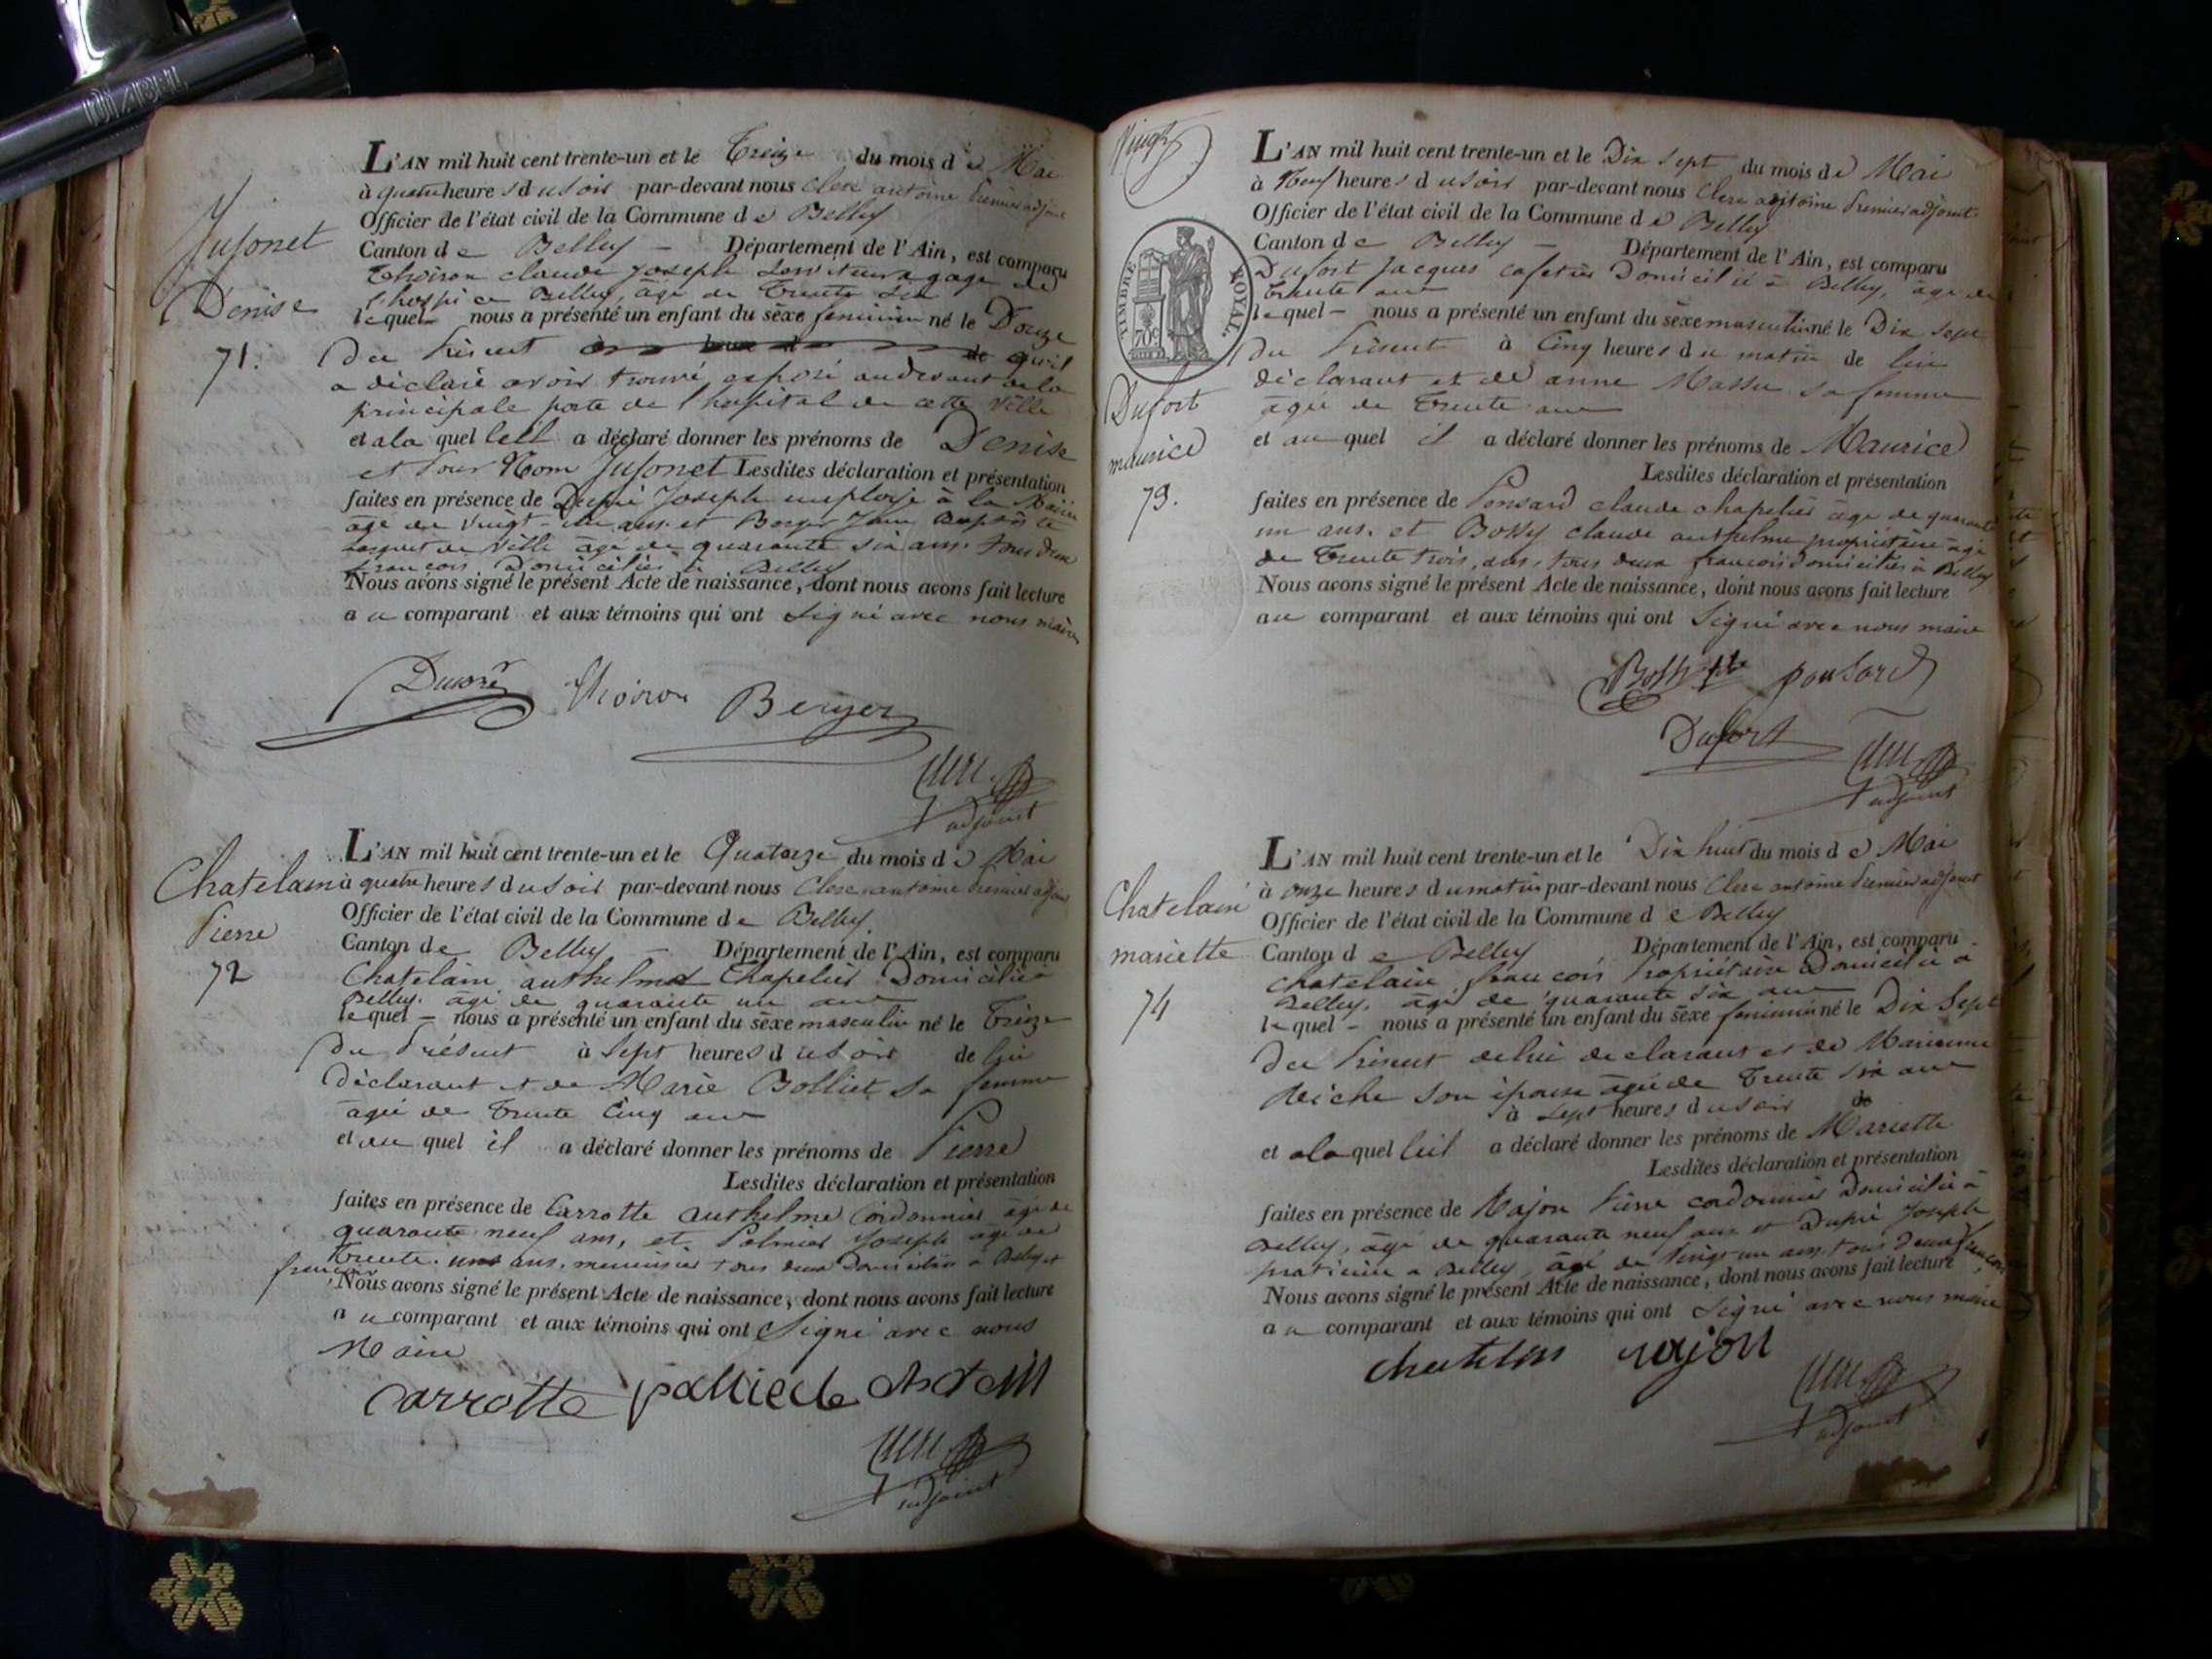 DIABEL
L'AN mil huit cent trente-un et le Treize du mois de Mai
à quatre heures du soir par-devant nous Clerc antoine premier adjoint
Officier de l'état civil de la Commune de Belley
Jusonet
Canton de Belley — Département de l'Ain, est comparu
Thoiron claude joseph Serviteur a gage de
l'hospice Belley, âgé de trente six
Denise
lequel nous a présenté un enfant du sèxe feminin né le Douze
71.
du présent qu'il
a déclaré avoir trouvé exposé audevant de la
principale porte de l'hopital de cette ville
et ala quel leil a déclaré donner les prénoms de Denise
et pour Nom Jusonet Lesdites déclaration et présentation
faites en présence de Dupré Joseph employé à la Mairie
âgé de vingt-un ans. et Berger Jean Baptiste
de Ville âgé de quarante six ans. tous deux
francois Domiciliés à Belley
Nous avons signé le présent Acte de naissance, dont nous avons fait lecture
au comparant et aux témoins qui ont signé avec nous maire
Dupré Thoiron Berger
Clerc
adjoint
L'AN mil huit cent trente-un et le Quatorze du mois de Mai
Chatelain
à quatre heures du soir par-devant nous Clerc antoine premier adjoint
Officier de l'état civil de la Commune de Belley.
Pierre
Canton de Belley — Département de l'Ain, est comparu
72
Chatelain anthelme Chapelier Domicilié à
Belley. âgé de quarante un ans
lequel — nous a présenté un enfant du sèxe masculin né le Treize
du présent à sept heures du soir de lui
déclarant et de Marie Bolliet sa femme
agée de trente cinq ans
et au quel il a déclaré donner les prénoms de Pierre
Lesdites déclaration et présentation
faites en présence de Carrotte anthelme Cordonnier âgé de
quarante neuf ans, et Joseph âgé de
trente un ans, menuisier tous deux Domiciliés à Belley et
francois
Nous avons signé le présent Acte de naissance, dont nous avons fait lecture
au comparant et aux témoins qui ont signé avec nous
Maire
carrotte
Clerc
adjoint
Vingt
L'AN mil huit cent trente-un et le Dix sept du mois de Mai
à Neuf heures du soir par-devant nous Clerc antoine premier adjoint
Officier de l'état civil de la Commune de Belley
Canton de Belley — Département de l'Ain, est comparu
TIMBRE ROYAL.
70c
Dufort Jacques cafetier Domicilié à Belley, âgé de
trente ans
lequel — nous a présenté un enfant du sèxe masculin né le Dix sept
du présent à Cinq heures du matin de lui
déclarant et de anne Massu sa femme
Dufort
agée de trente ans
maurice
et au quel il a déclaré donner les prénoms de Maurice
Lesdites déclaration et présentation
73.
faites en présence de Ponsard claude chapelier âgé de quarante
un ans. et Bossy claude anthelme propriétaire âgé
de trente trois, ans, tous deux francois domiciliés à Belley
Nous avons signé le présent Acte de naissance, dont nous avons fait lecture
au comparant et aux témoins qui ont signé avec nous maire
ponsard
Dufort
Clerc
adjoint
L'AN mil huit cent trente-un et le Dix huit du mois de Mai
Chatelain
à onze heures du matin par-devant nous Clerc antoine premier adjoint
Officier de l'état civil de la Commune de Belley
mariette
Canton de Belley Département de l'Ain, est comparu
74
chatelain francois propriétaire Domicilié à
Belley. âgé de quarante six ans
lequel — nous a présenté un enfant du sèxe feminin né le Dix sept
du présent de lui declarant et de Marianne
son épouse âgée de trente six ans
à sept heures du soir
et ala quel leil a déclaré donner les prénoms de Mariette
Lesdites déclaration et présentation
faites en présence de Rajon Pierre cordonnier Domicilié à
Belley, âgé de quarante neuf ans et Dupré Joseph
praticien à Belley, âgé de vingt un ans tous deux francois
Nous avons signé le présent Acte de naissance, dont nous avons fait lecture
au comparant et aux témoins qui ont signé avec nous maire
rajon
Clerc
adjoint